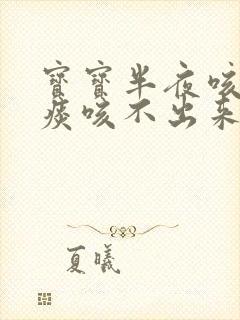 寶寶半夜咳
痰咳不出來
夏曦